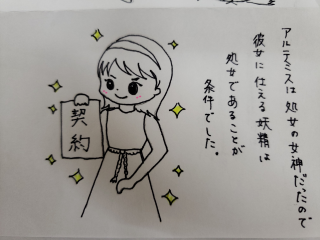 アルテミスは処女の女神だったので
彼女に仕える妖精は
処女であることが
条件でした。
契約